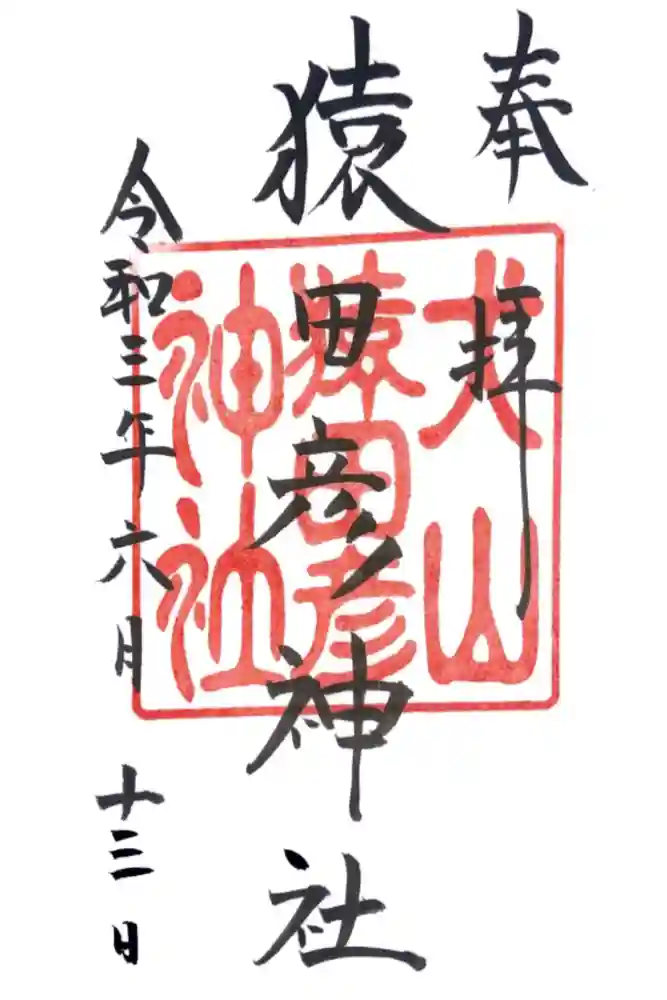 奉拝
猿田彦神社
令和三年六月十三日
犬山
猿田彦
神社